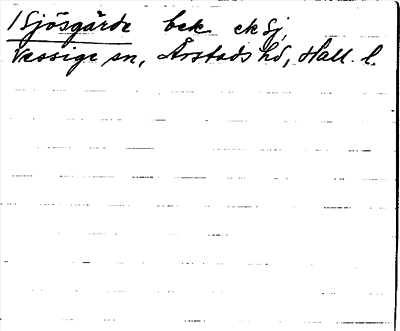 /Sjösgärde bek. ek Sj,
Vessige sn, Årstads hd, Hall. l.